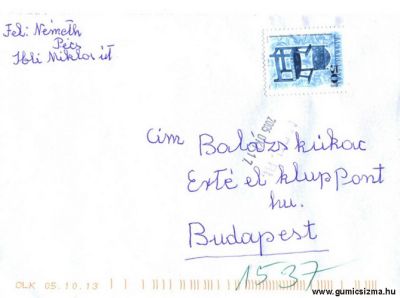 Fel: Németh
Pécs
Ibli Miklos út
50
2005
17
Cím Balázs kukac
Erté el kluppont
hu.
Budapest
1537
OLK 05.10.13
www.gumicsizma.hu